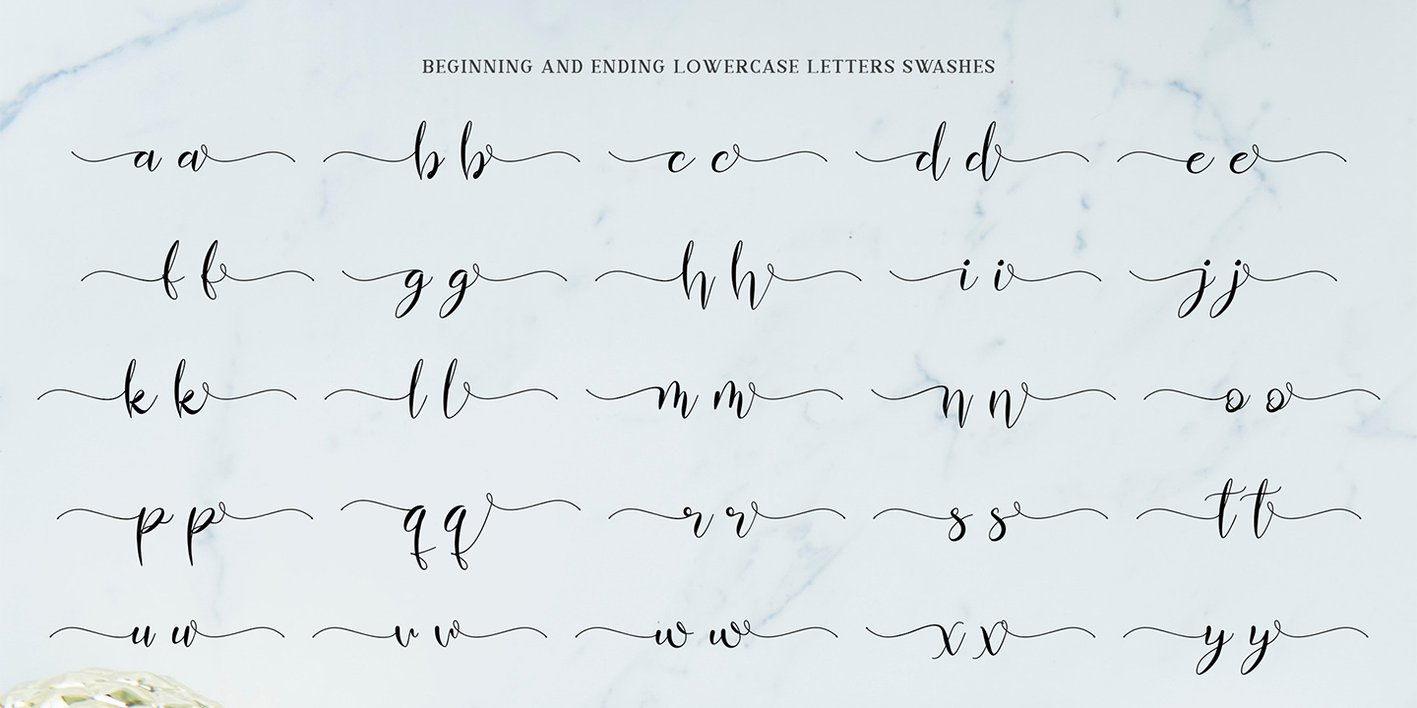 BEGINNING AND ENDING LOWERCASE LETTERS SWASHES
a a b b c c d d e e
f f g g h h i i j j
k k l l m m n n o o
p p q q r r s s t t
u u v v w w x x y y